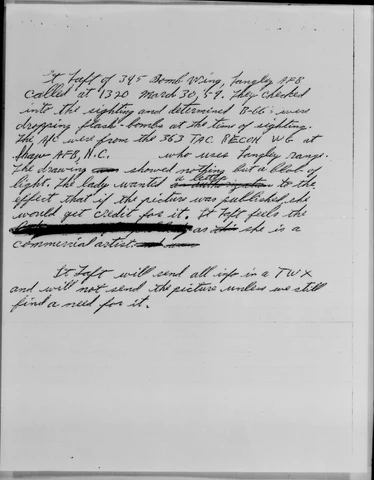 Lt Taft of 345 Bomb Wing, Langley AFB
called at 1320 March 30, 59. They checked
into the sighting and determined B-66's were
dropping flash-bombs at the time of sighting.
The A/C were from the 363 TAC RECON WG at
Shaw AFB, N.C. who uses Langley range.
The drawing showed nothing but a blob of
light. The lady wanted a letter to the
effect that if the picture was published she
would get credit for it. Lt Taft feels the
as she is a
commercial artist.
Lt Taft will send all info in a TWX
and will not send the picture unless we still
find a need for it.